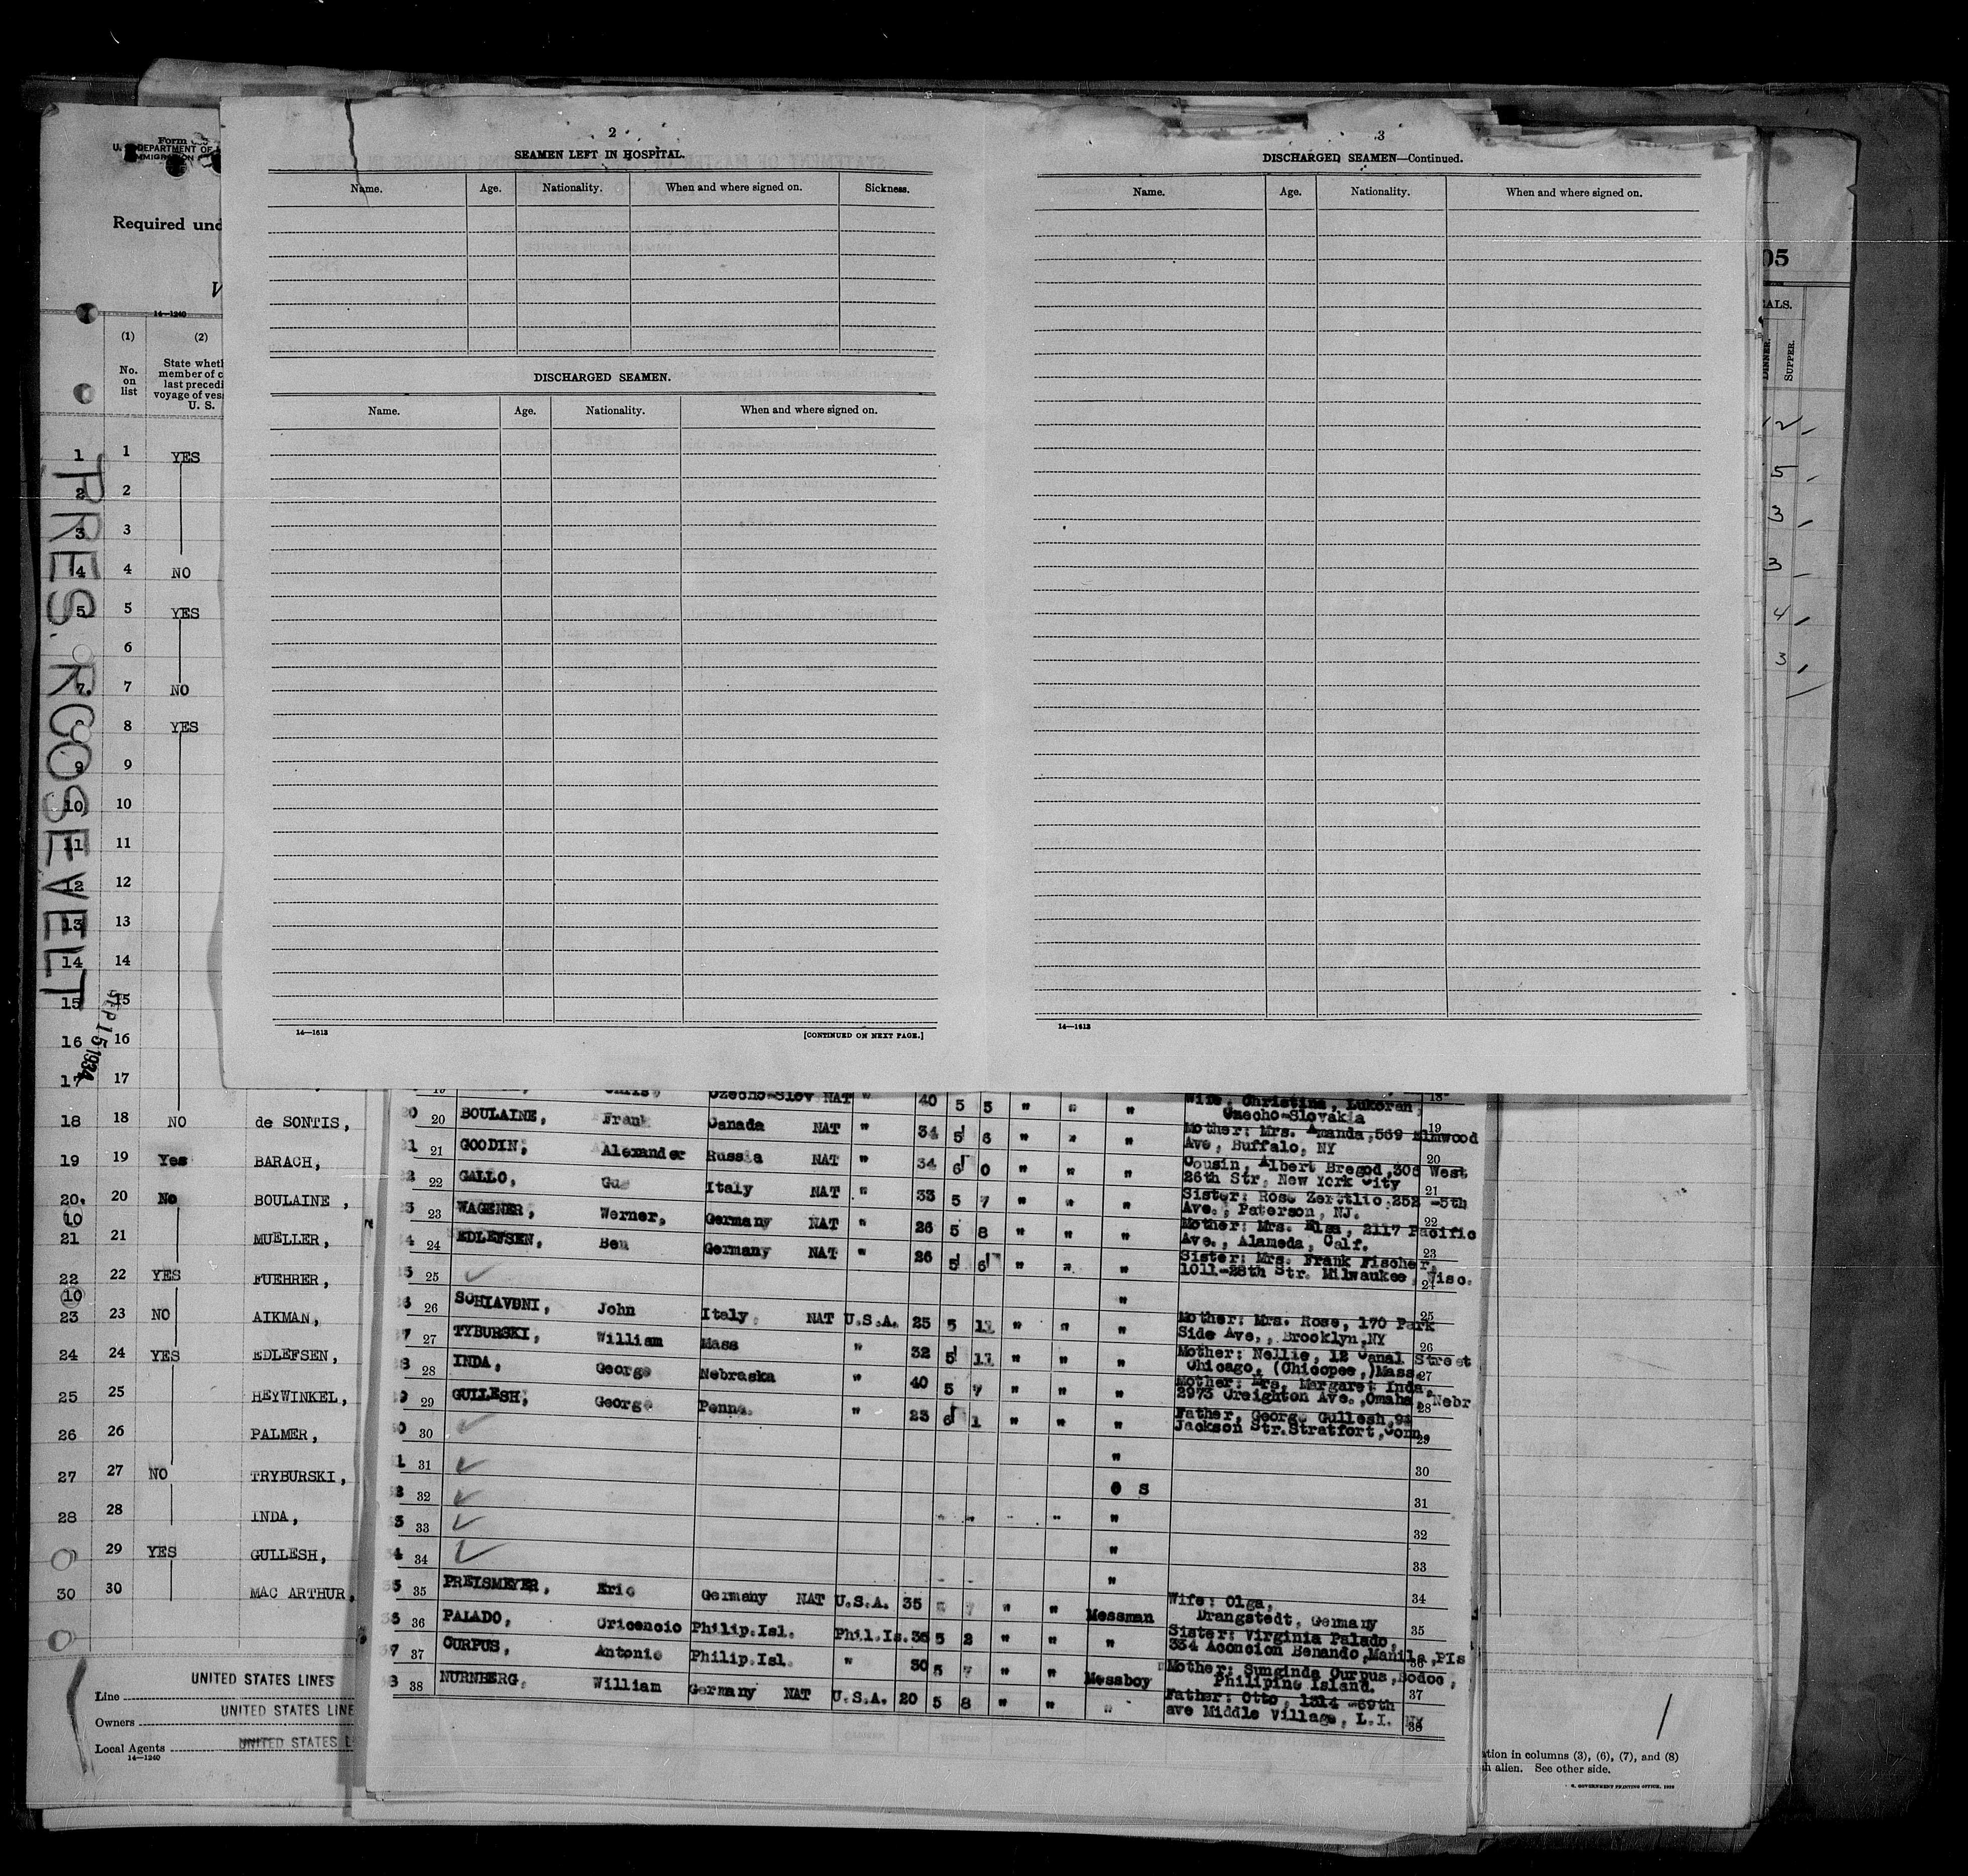 Form
U. S. DEPARTMENT OF
IMMIGRATION
Required und
V
14—1240
(1) (2)
No. on list
State wheth
member of c
last precedi
voyage of ves
U. S.
PRES. ROOSEVELT
SEP 15 1934
1 1 YES
2 2
3 3
4 4 NO
5 5 YES
6
7 7 NO
8 YES
9 9
10 10
11 11
12 12
13 13
14 14
15 15
16 16
17 17
18 18 NO de SONTIS,
19 19 Yes BARACH,
20 20 No BOULAINE,
10
21 21 MUELLER,
22 22 YES FUEHRER,
10
23 23 NO AIKMAN,
24 24 YES EDLEFSEN,
25 25 HEYWINKEL,
26 26 PALMER,
27 27 NO TRYBURSKI,
28 28 INDA,
29 29 YES GULLESH,
30 30 MAC ARTHUR,
Line UNITED STATES LINES
Owners UNITED STATES LINE
Local Agents UNITED STATES L
14—1240
2
SEAMEN LEFT IN HOSPITAL.
Name. Age. Nationality. When and where signed on. Sickness.
DISCHARGED SEAMEN.
Name. Age. Nationality. When and where signed on.
14—1613 [CONTINUED ON NEXT PAGE.]
3
DISCHARGED SEAMEN—Continued.
Name. Age. Nationality. When and where signed on.
14—1613
05
EALS.
DINNER.
SUPPER.
12
5
3
3
4
3
19 Chris, Czecho-Slov NAT " 40 5 5 " " " Wife: Christina, Lukoran, 18
Czecho-Slovakia
20 20 BOULAINE, Frank Canada NAT " 34 5 6 " " " Mother: Mrs. Amanda, 569 Elmwood 19
Ave, Buffalo, NY
21 21 GOODIN, Alexander Russia NAT " 34 6 0 " " " Cousin, Albert Bregod, 306 West 20
26th Str, New York City
22 22 GALLO, Gus Italy NAT " 33 5 7 " " " Sister: Rose 252 -5th 21
Ave., Paterson, NJ.
23 23 WAGENER, Werner, Germany NAT " 26 5 8 " " " Mother: Mrs. Elsa, 2117 Pacific 22
Ave., Alameda, Calf.
24 24 EDLEFSEN, Ben Germany NAT " 26 5 6 " " " Sister: Mrs. Frank Fischer, 23
1011-28th Str. Milwaukee, Wisc. 24
25 25 ✓ "
26 26 SCHIAVONI, John Italy NAT U.S.A. 25 5 11 " " " Mother: Mrs. Rose, 170 Park 25
Side Ave., Brooklyn, NY
27 27 TYBURSKI, William Mass " 32 5 11 " " " Mother: Nellie, 12 Canal Street 26
Chicago, (Chicopee,)Mass.
28 28 INDA, George Nebraska " 40 5 7 " " " Mother: Mrs. Margaret Inda, 27
2973 Creighton Ave., Omaha, Nebr
29 29 GULLESH, George Penna. " 23 6 1 " " " Father, George Gullesh, 94 28
Jackson Str. Stratfort, Conn. 29
30 30 ✓ " 30
31 31 ✓ e s 31
32 32 ✓ " 32
33 33 ✓ " 33
34 34 ✓ " 34
35 35 PREISMEYER, Eric Germany NAT U.S.A. 35 " " Messman Wife: Olga,
Drangstedt, Germany 35
36 36 PALADO, Cricencio Philip.Isl. Phil.Is. 36 5 2 " " " Sister: Virginia Palado,
334 Acencion Benando, Manila, PIs 36
37 37 CURPUS, Antonio Philip.Isl. " 30 5 7 " " Messboy Mother: Suninda Curpus, Bodoc,
Philipine Island. 37
38 38 NURNBERG, William Germany NAT U.S.A. 20 5 8 " " " Father: Otto, 1514 -69th
ave Middle Village, L.I. NY 38
tion in columns (3), (6), (7), and (8)
h alien. See other side.
GOVERNMENT PRINTING OFFICE